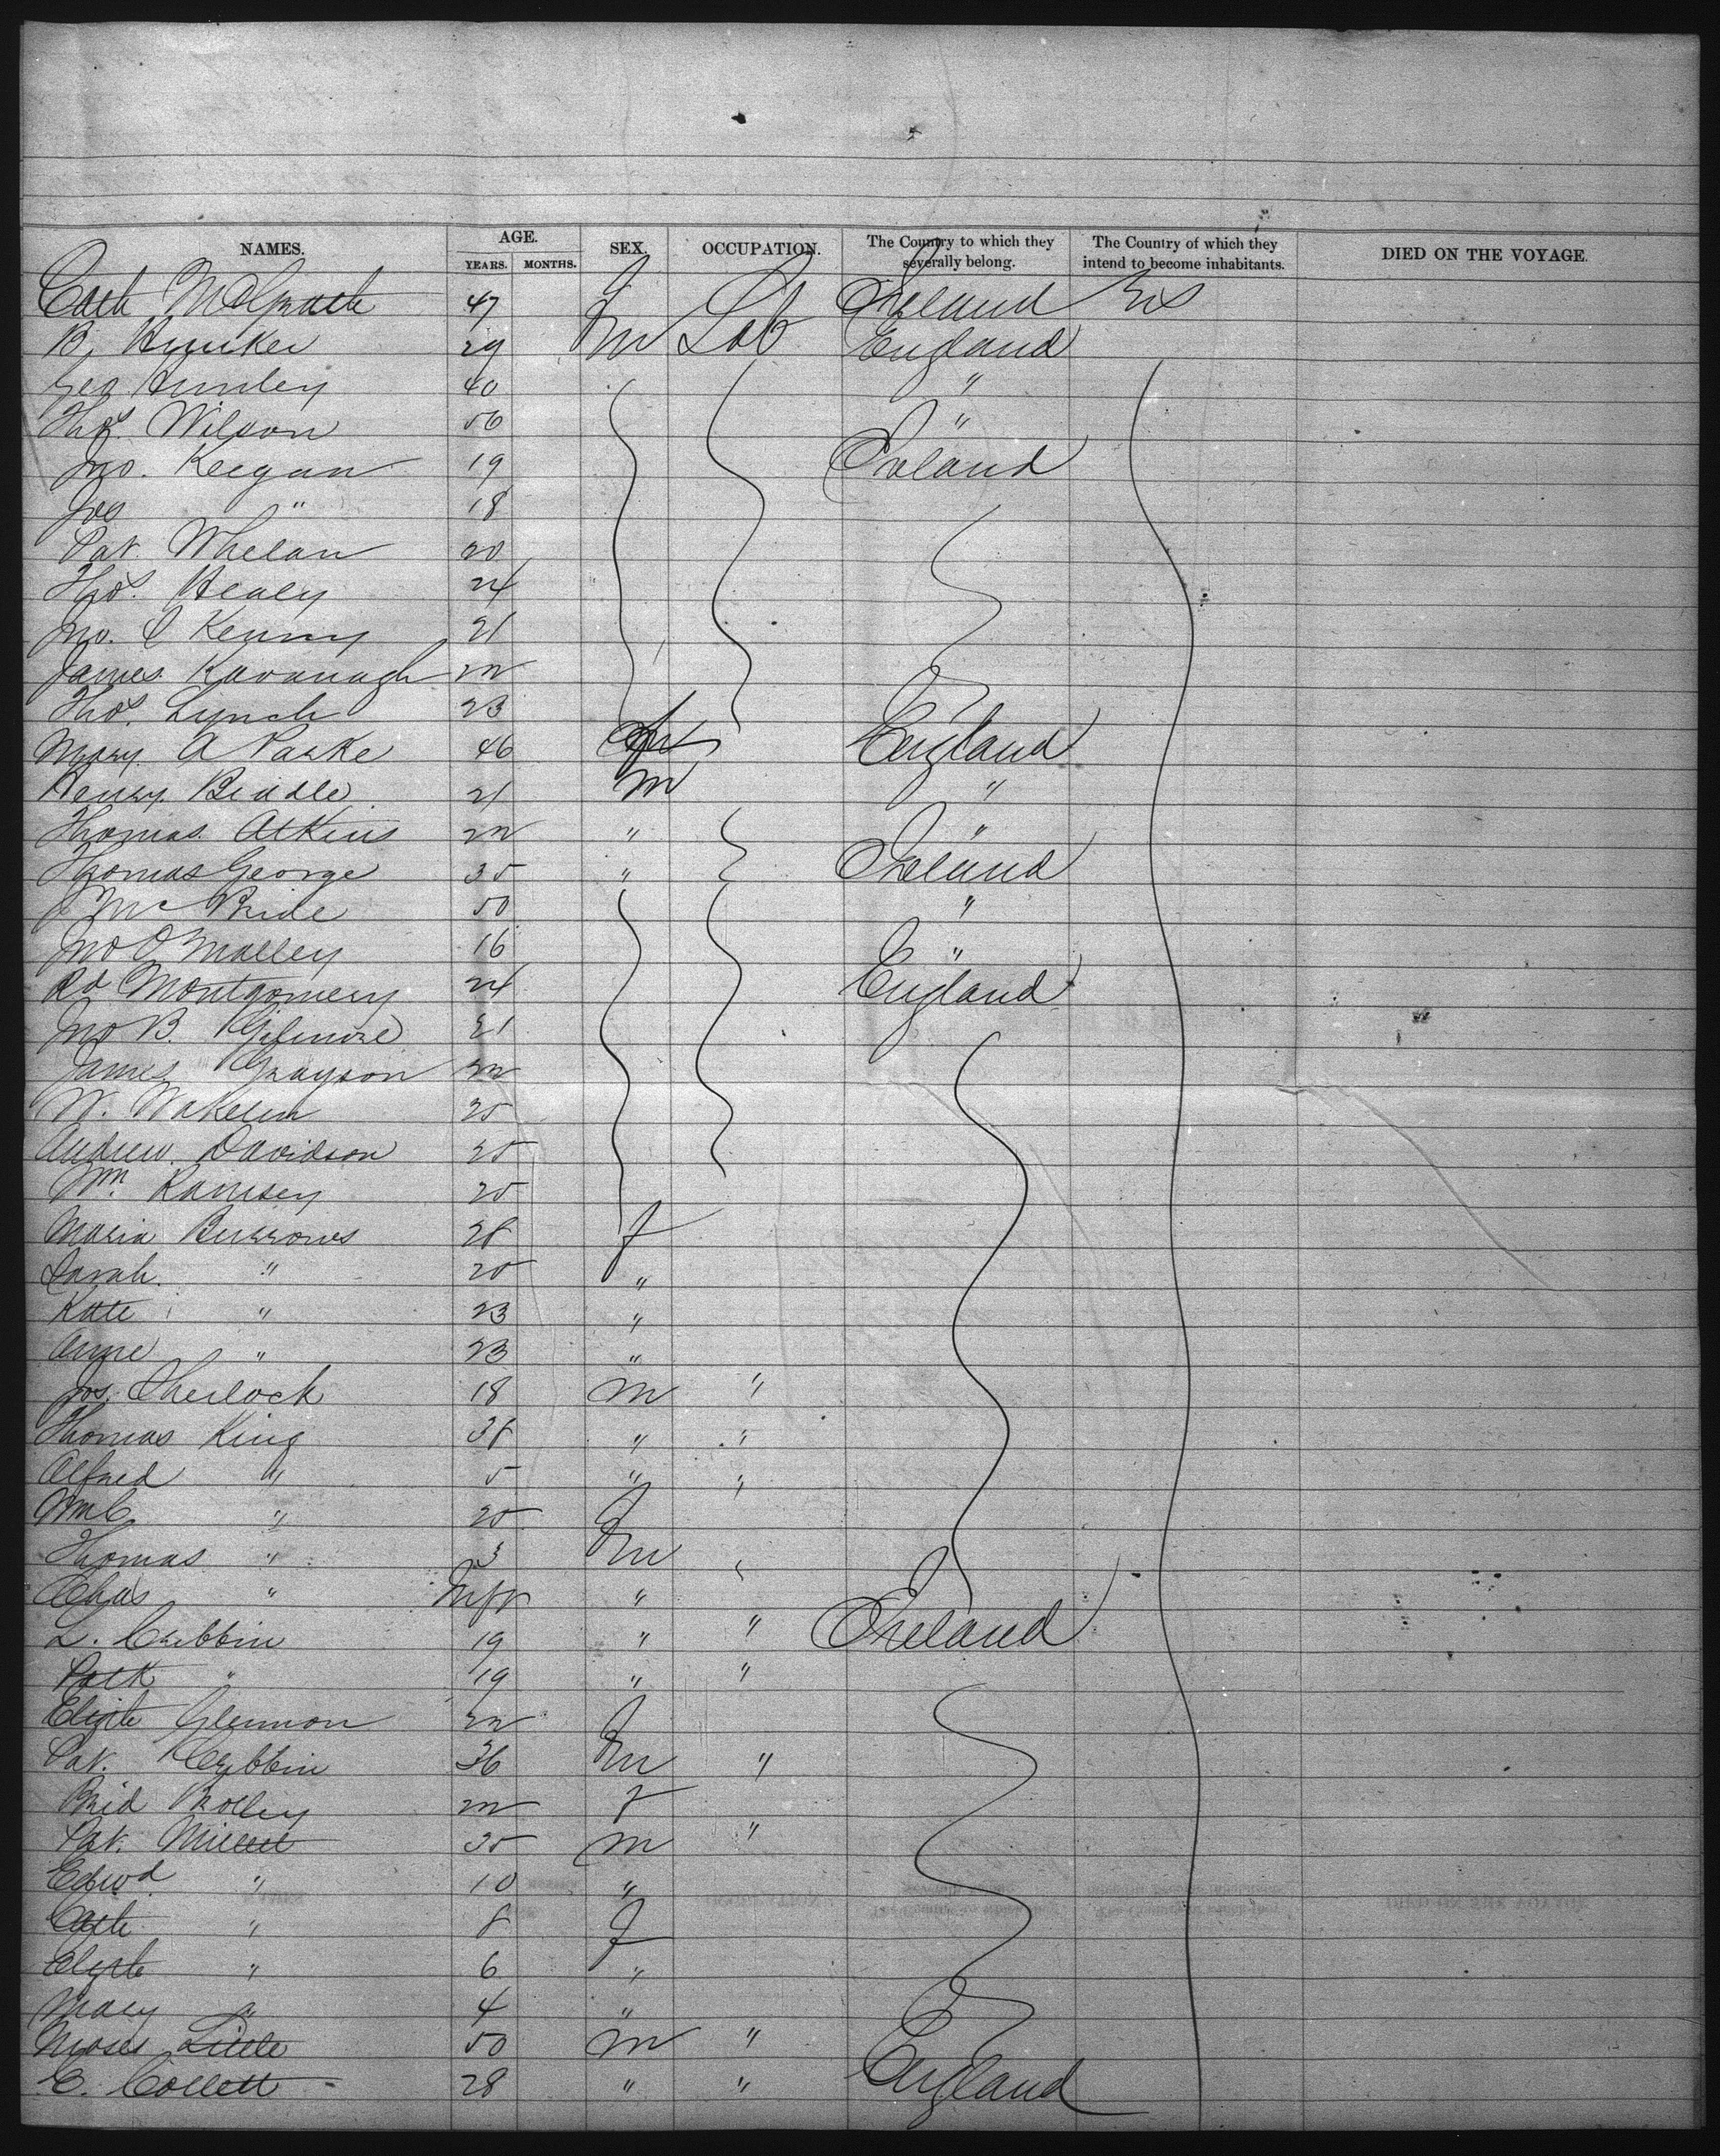 NAMES. AGE. SEX. OCCUPATION. The Country to which they severally belong. The Country of which they intend to become inhabitants. DIED ON THE VOYAGE.
YEARS. MONTHS.
Cath McGrath 47 f Lab Ireland US
B. 29 m Lab England
Geo 40 "
Thos. Wilson 56 "
Jno. Keegan 19 Ireland
Jos " 18
Pat. Whelan 20
Thos. Healy 24
Jno. Kenny 21
James Kavanagh 22
Thos. Lynch 23
Mary A Parke 46 f England
Henry Beadle 21 m "
Thomas Atkins 22 " "
Thomas George 35 " Ireland
J McBride 50 "
Jno O'Malley 16 "
Rd Montgomery 24 England
Jno B. Gilmore 21
James Grayson 22
W. Wakelin 25
Andrew Davidson 25
Wm. Ramsey 25
Maria Burrows 28 f
Sarah " 20 "
Kate " 23 "
Anne " 23 "
Jos. Sherlock 18 m "
Thomas King 38 " "
Alfred " 5 " "
Wm C " 25 f
Thomas " 3 m
Chas " Inft "
L. Cribbin 19 " " Ireland
Patk " 19 " "
Elizth Glennon 22 f
Pat. Cribbin 36 m "
Brid 22 f
Pat. 35 m "
Edwd " 10 "
Cath " 8 f
Elizth " 6 "
Mary " 4 "
Moses Little 50 m "
E. Collett 28 " " England